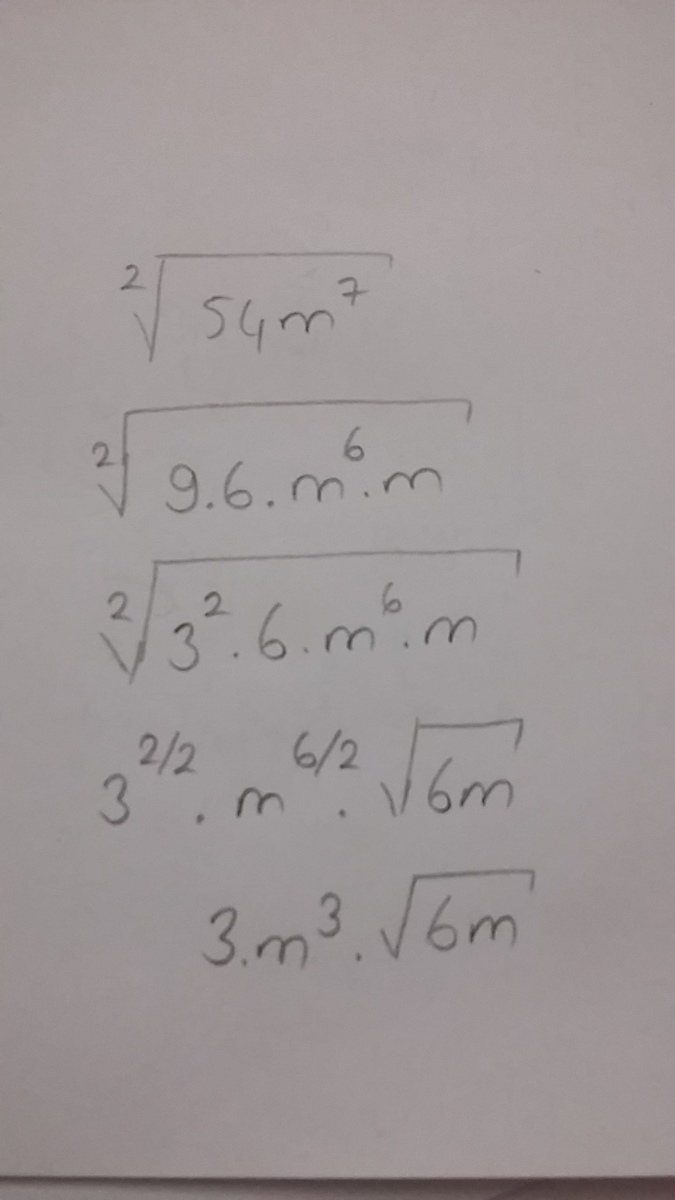 ²√54m⁷
²√9.6.m⁶.m
²√3².6.m⁶.m
3^2/2.m^6/2.√6m
3.m³.√6m